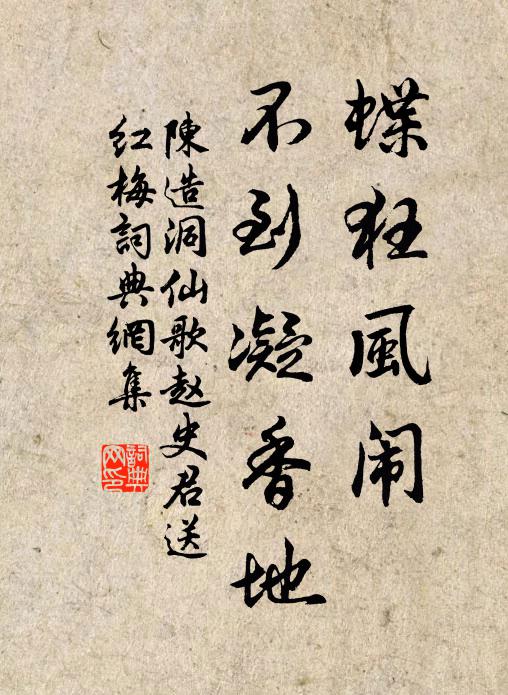 蝶狂風闹
不到凝香地
陳造洞仙歌赵史君送
红梅詞典網集
詞典网印